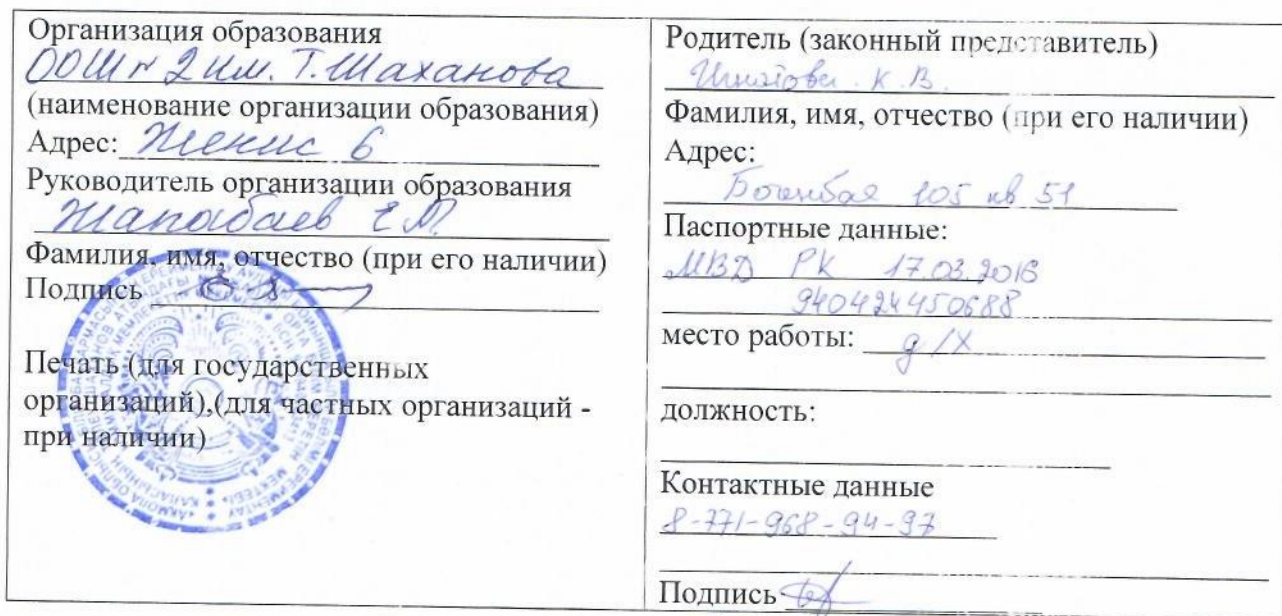 Организация образования
ООШ № 2 им. Т. Шаханова
(наименование организации образования)
Адрес: Женис 6
Руководитель организации образования
Жапабаев Е.М.
Фамилия, имя, отчество (при его наличии)
Подпись
Печать (для государственных
организаций),(для частных организаций -
при наличии)
Родитель (законный представитель)
К.В.
Фамилия, имя, отчество (при его наличии)
Адрес:
Богенбая 105 кв 51
Паспортные данные:
МВД РК 17.03.2016
940424450688
место работы: д/х
должность:
Контактные данные
8-771-968-94-97
Подпись